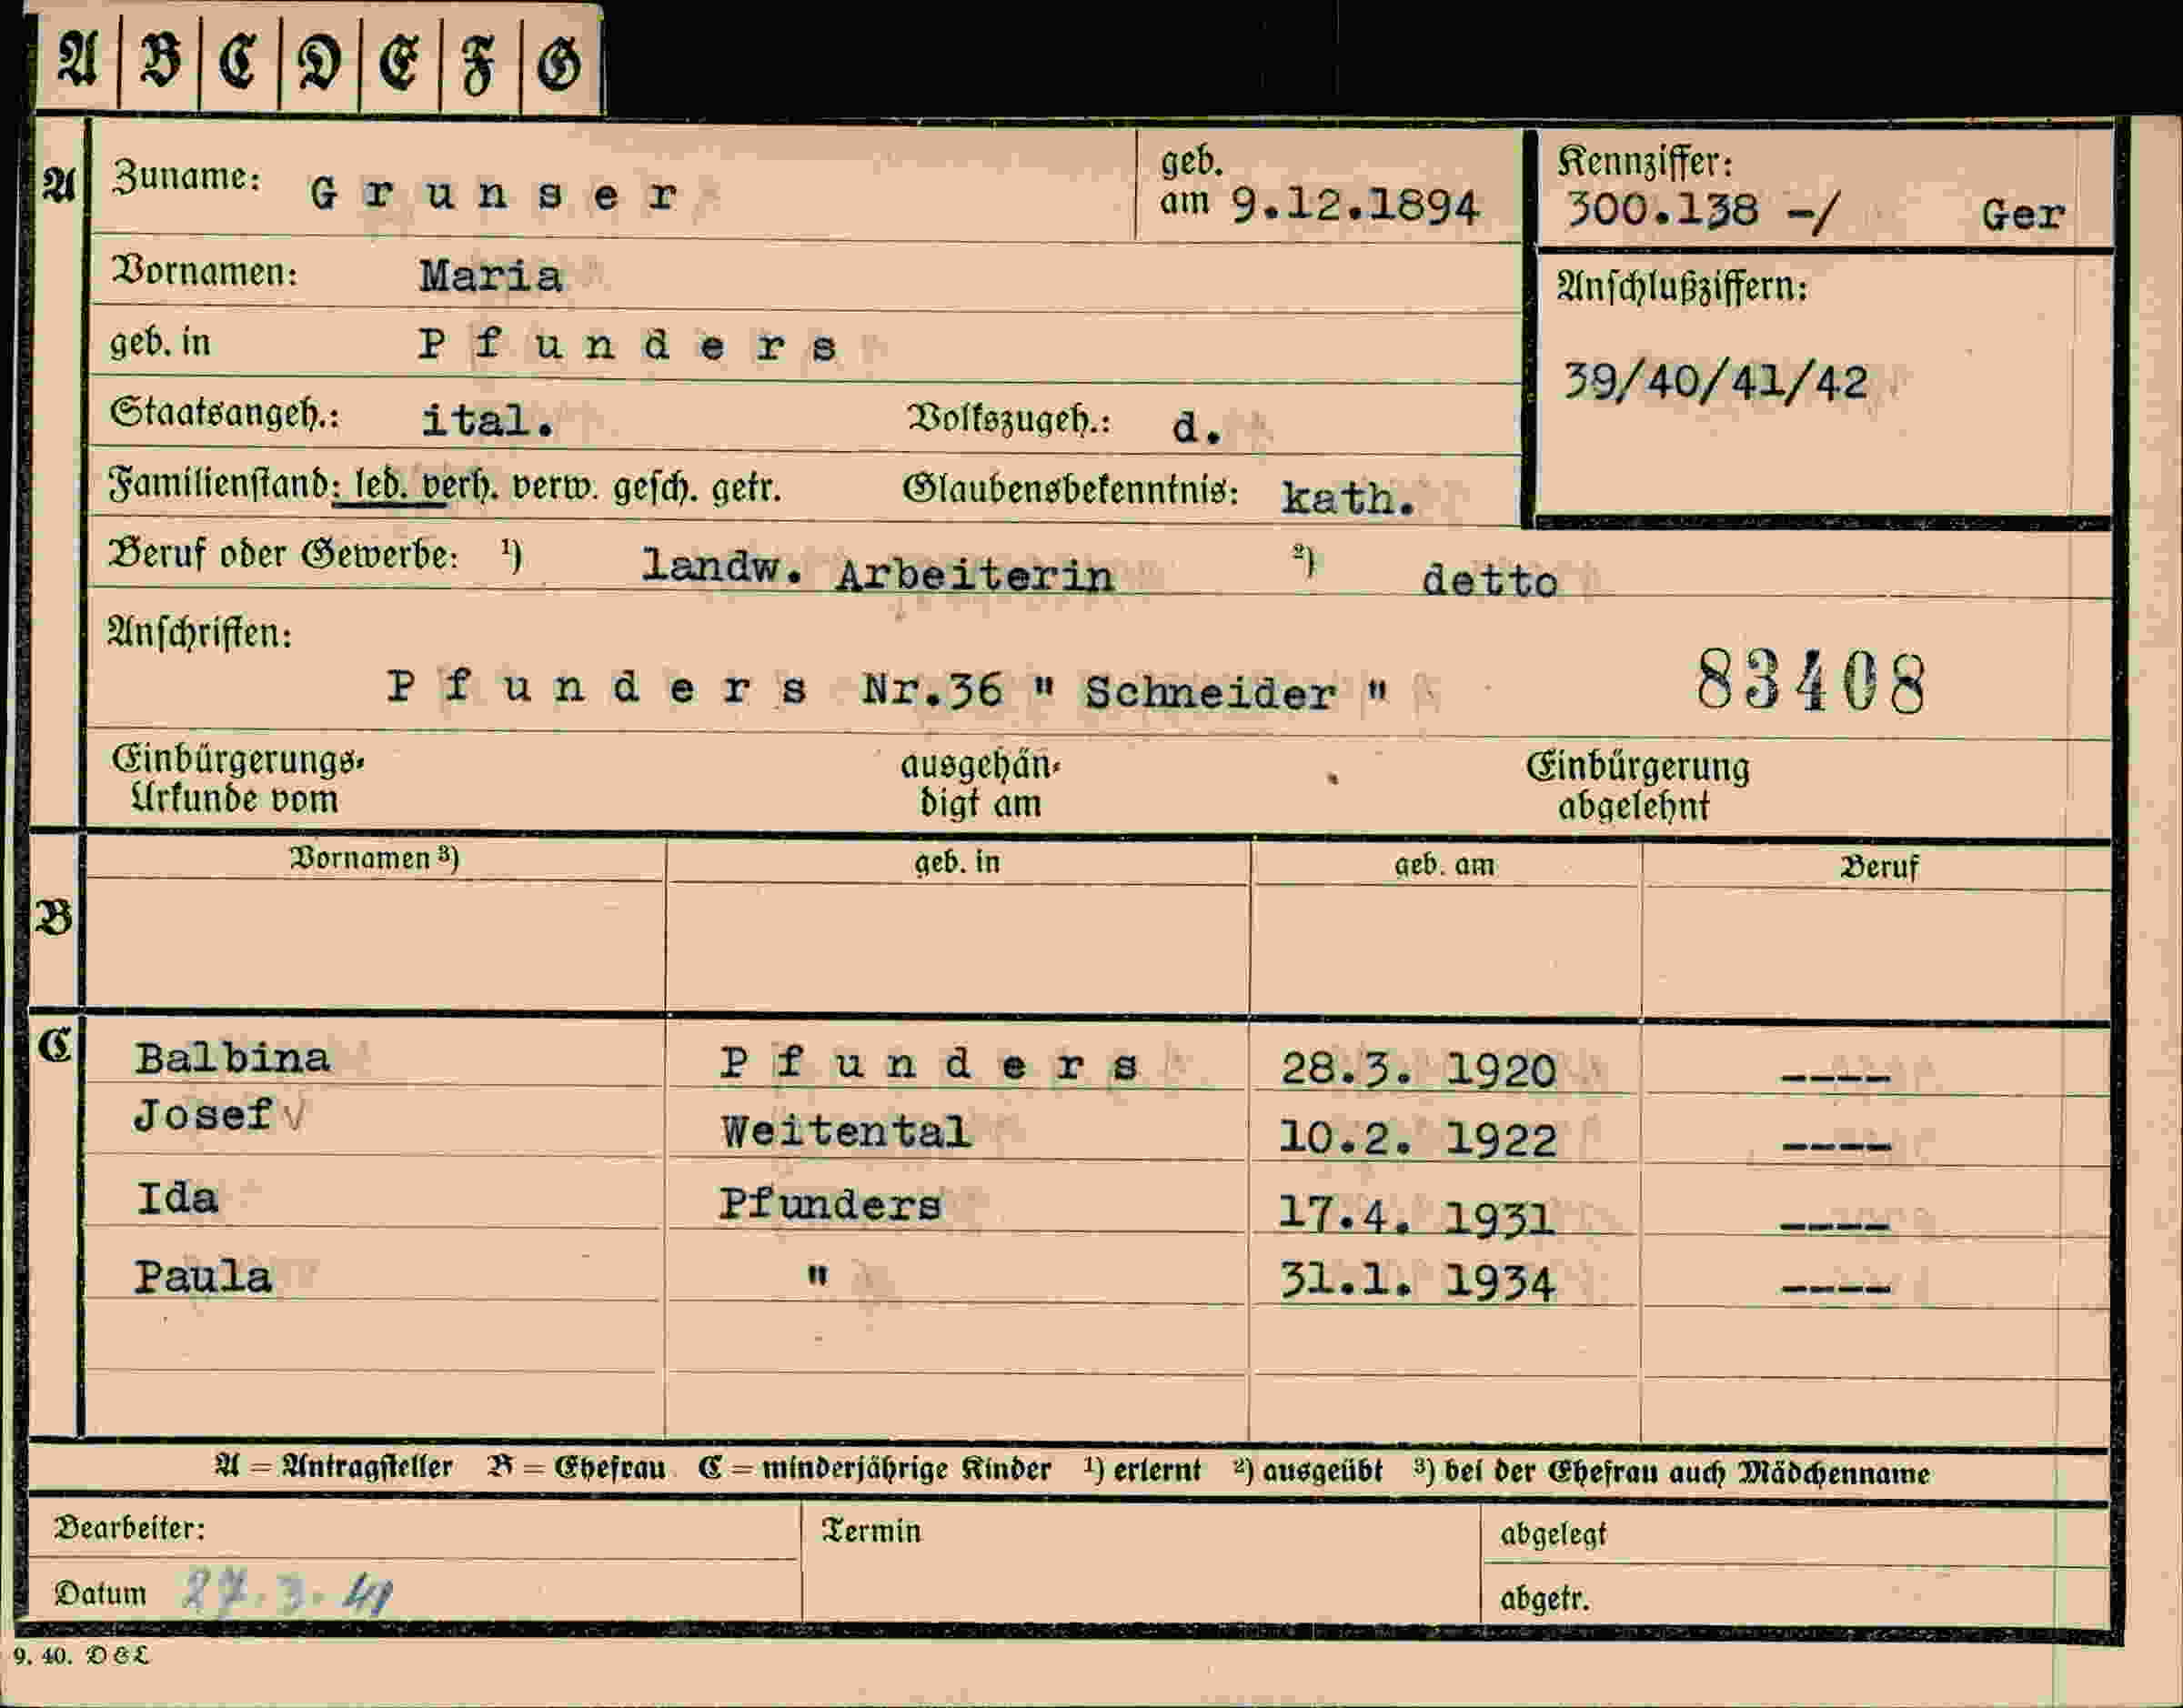 A B C D E F G
A Zuname: G r u n s e r geb. am 9.12.1894
Kennziffer: 300.138 -/ Ger
Vornamen: Maria
Anschlußziffern:
geb. in P f u n d e r s
39/40/41/42
Staatsangeh.: ital. Volkszugeh.: d.
Familienstand: led. verh. verw. gesch. getr. Glaubensbekenntnis: kath.
Beruf oder Gewerbe: ¹) landw. Arbeiterin ²) detto
Anschriften:
P f u n d e r s Nr.36 " Schneider " 83408
Einbürgerungs- ausgehän- Einbürgerung
Urkunde vom digt am abgelehnt
Vornamen ³) geb. in geb. am Beruf
B
C Balbina P f u n d e r s 28.3. 1920 ----
Josef √ Weitental 10.2. 1922 ----
Ida Pfunders 17.4. 1931 ----
Paula " 31.1. 1934 ----
A = Antragsteller B = Ehefrau C = minderjährige Kinder ¹) erlernt ²) ausgeübt ³) bei der Ehefrau auch Mädchenname
Bearbeiter: Termin abgelegt
Datum 27.3.41 abgetr.
9. 40. D & L